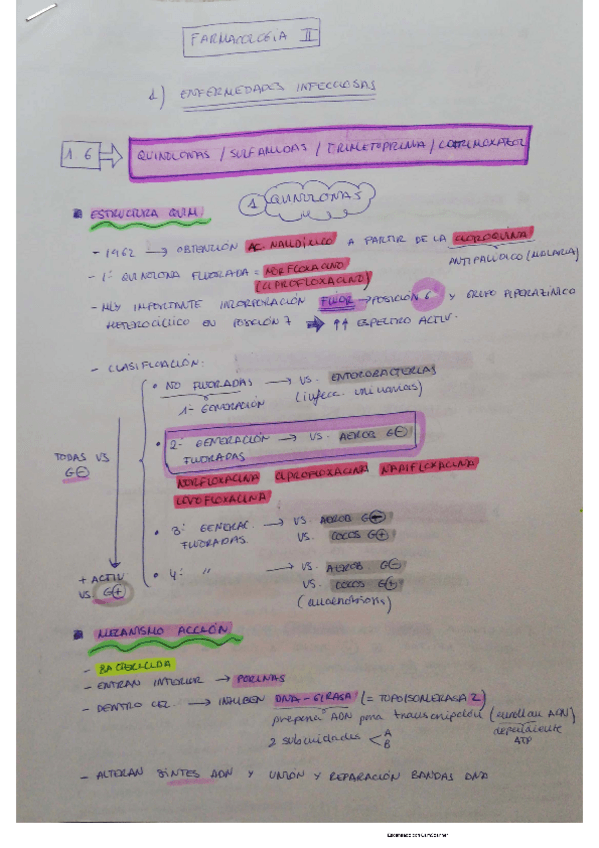 FARMACOLOGIA II
1) ENFERMEDADES INFECCIOSAS
1.6 QUINOLONAS / SULFAMIDAS / TRIMETOPRIMA / COTRIMOXAZOL
1 QUINOLONAS
ESTRUCTURA QUIM.
- 1962 → OBTENCIÓN AC. NALIDÍXICO A PARTIR DE LA CLOROQUINA
ANTIPALÚDICO (MALARIA)
- 1ª QUINOLONA FLUORADA = NORFLOXACINO
(CIPROFLOXACINO)
- MUY IMPORTANTE INCORPORACIÓN FLÚOR → POSICIÓN 6 Y GRUPO PIPERAZÍNICO
HETEROCÍCLICO EN POSICIÓN 7 ⇒ ↑↑ ESPECTRO ACTIV.
- CLASIFICACIÓN:
• NO FLUORADAS → VS. ENTEROBACTERIAS
1ª GENERACIÓN (infecc. urinarias)
• 2ª GENERACIÓN → VS. AEROB G⊖
FLUORADAS
TODAS VS
G⊖
NORFLOXACINA CIPROFLOXACINA NADIFLOXACINA
LEVOFLOXACINA
• 3ª GENERAC. → VS. AEROB G⊖
FLUORADAS. VS. COCOS G⊕
• 4ª " → VS. AEROB G⊖
+ ACTIV
VS. G⊕
VS. COCOS G⊕
MECANISMO ACCIÓN
- BACTERICIDA
- ENTRAN INTERIOR → PORINAS
- DENTRO CEL. → INHIBEN DNA-GIRASA (= TOPOISOMERASA 2)
prepara ADN para transcripción (enrollan ADN)
dependiente
ATP
2 subunidades < A
B
- ALTERAN SÍNTES ADN Y UNIÓN Y REPARACIÓN BANDAS DNA
Escaneado con CamScanner